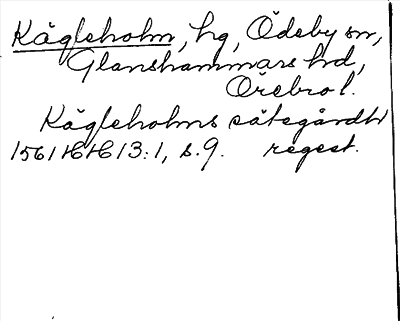 Kägleholm, hg, Ödeby sn,
Glanshammars hd,
Örebro l.
Kägleholms sätesgård
1561 HH 13:1, s.9. regest.